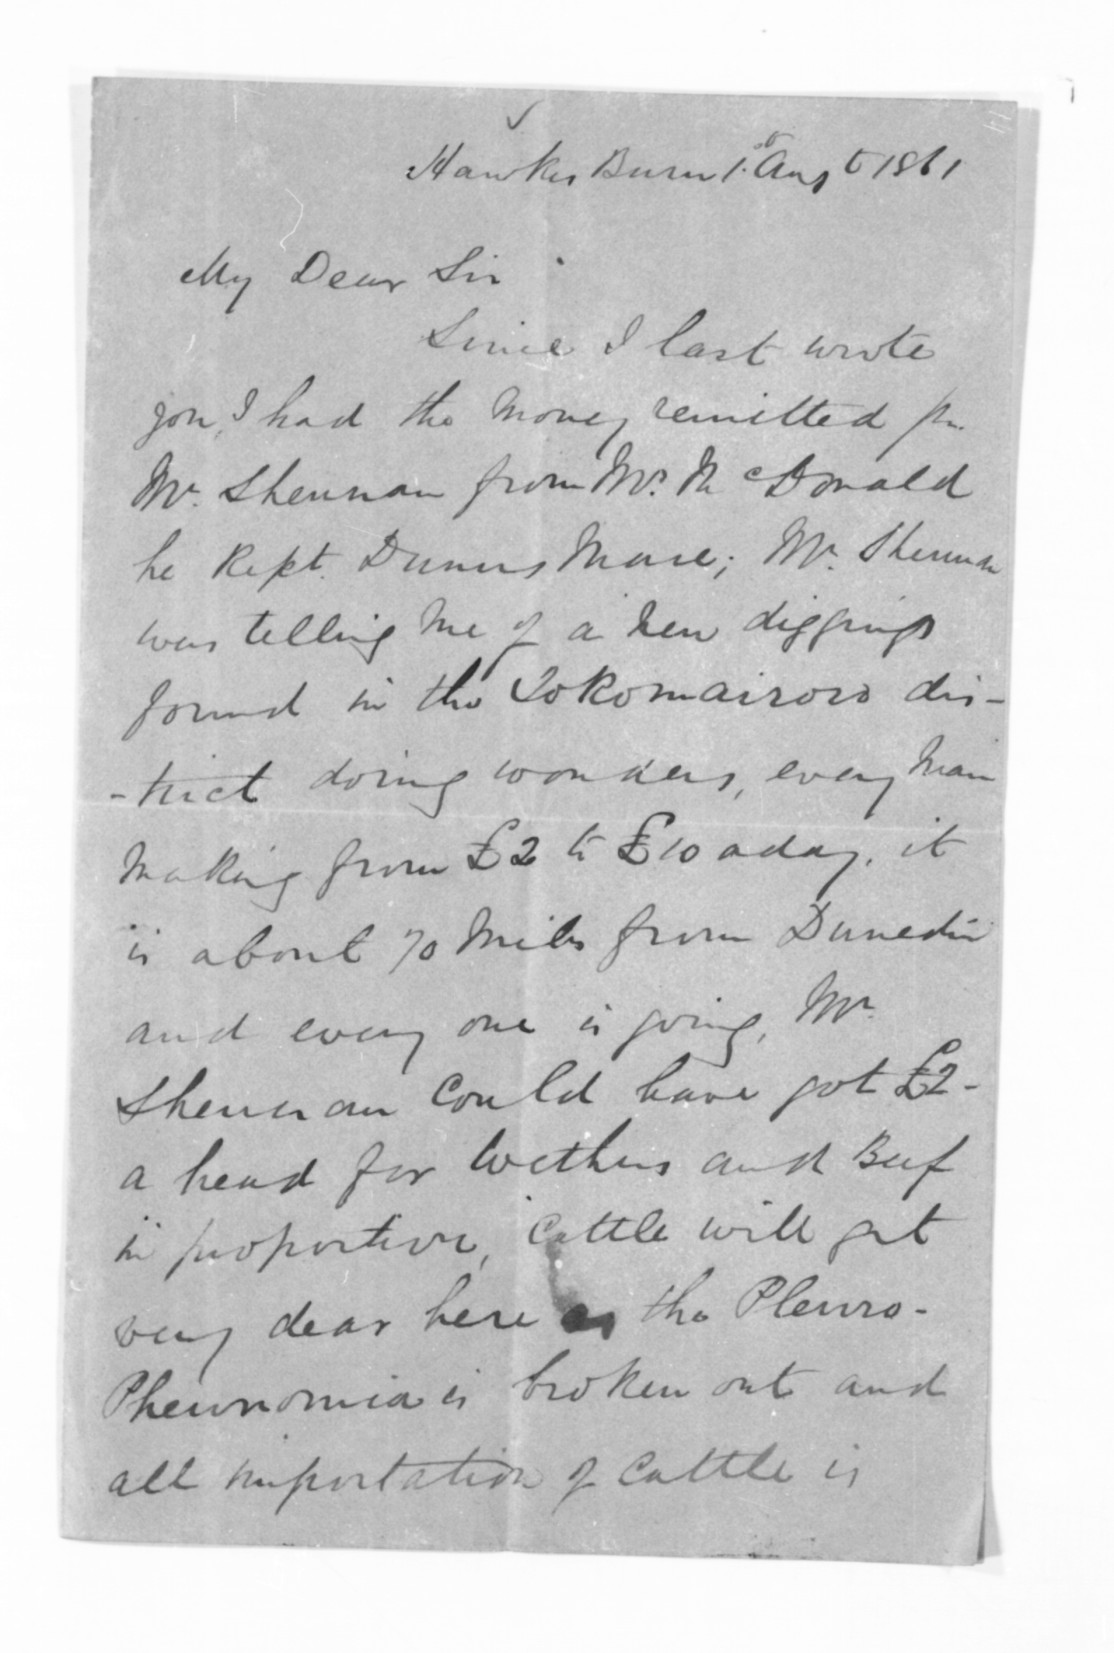 Hawkes Burn 1st Augt 1861
My Dear Sir
Since I last wrote
you, I had the money remitted pr.
Mr. Shennan from Mr. McDonald
he kept Mare; Mr. Shennan
was telling me of a new diggings
found in the Tokomairoro dis-
-trict doing wonders, every man
making from £2 to £10 a day, it
is about 70 miles from Dunedin
and every one is going, Mr.
Shennan could have got £2-
a head for wethers and Beef
in proportion, Cattle will get
very dear here as the Pleuro-
Pheunomia is broken out and
all importation of cattle is